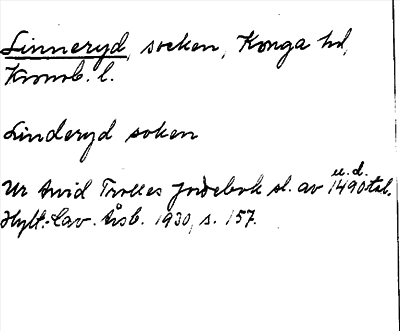 Linneryd, socken, Konga hd,
Kronob. l.
Linderyd soken
u. d.
Ur Arvid Trolles jordebok sl. av 1490tal.
Hylt.-Cav. Årsb. 1930, s. 157.